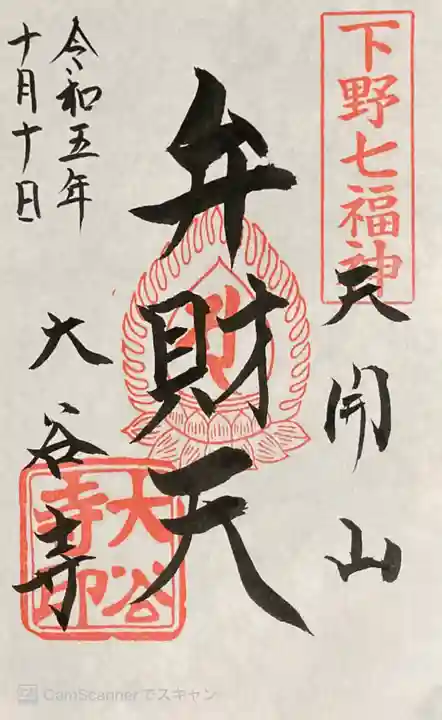 下野七福神
天開山
弁財天
大谷寺
大谷寺印
令和五年
十月十日
CamScannerでスキャン